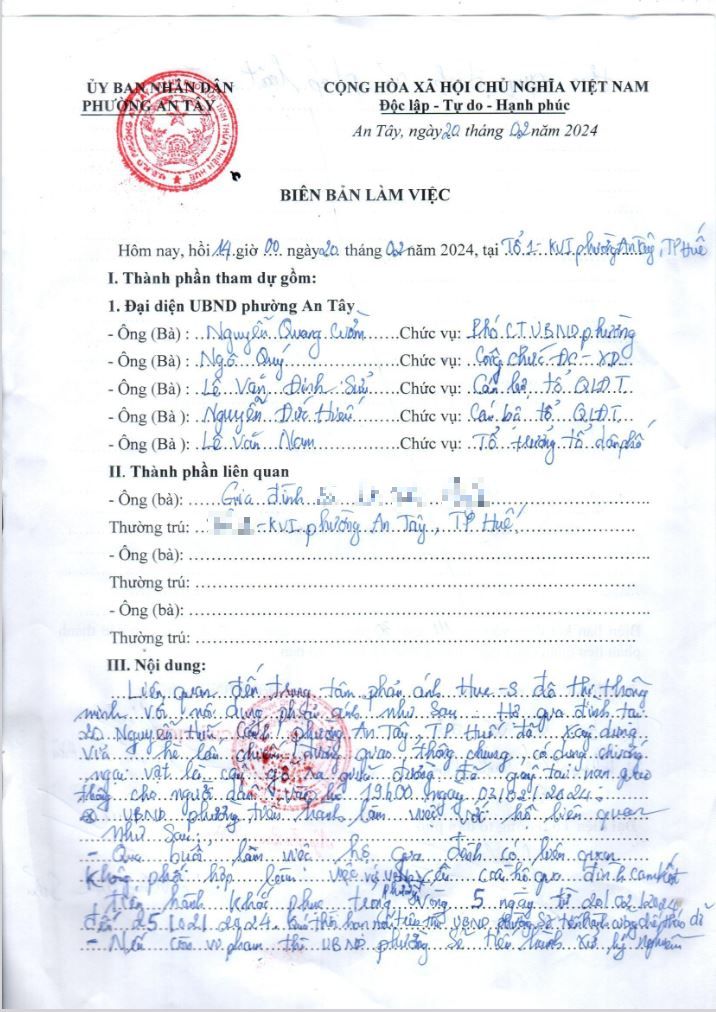 ỦY BAN NHÂN DÂN
PHƯỜNG AN TÂY
CỘNG HÒA XÃ HỘI CHỦ NGHĨA VIỆT NAM
Độc lập - Tự do - Hạnh phúc
An Tây, ngày 20 tháng 02 năm 2024
BIÊN BẢN LÀM VIỆC
Hôm nay, hồi 14 giờ 00 ngày 20 tháng 02 năm 2024, tại Tổ 1 - KVI phường An Tây, TP Huế
I. Thành phần tham dự gồm:
1. Đại diện UBND phường An Tây
- Ông (Bà) : Nguyễn Quang Chức vụ: Phó CT UBND phường
- Ông (Bà ) : Ngô Quý Chức vụ: Công chức ĐC - XD
- Ông (Bà ) : Lê Văn Đình Sửu Chức vụ: Cán bộ tổ QLĐT
- Ông (Bà ) : Nguyễn Đức Hiếu Chức vụ: Cán bộ tổ QLĐT
- Ông (Bà ) : Lê Văn Nam Chức vụ: Tổ trưởng tổ dân phố
II. Thành phần liên quan
- Ông (bà): Gia đình
Thường trú: - KVI phường An Tây, TP Huế
- Ông (bà):
Thường trú:
- Ông (bà):
Thường trú:
III. Nội dung:
Liên quan đến trung tâm phản ánh Hue-S đô thị thông
minh với nội dung phản ánh như sau: Hộ gia đình tại
20 Nguyễn phường An Tây, TP Huế đã xây dựng
vỉa hè lấn chiếm đường giao thông chung, có dựng chướng
ngại vật là cây gỗ ra giữa đường đã gây tai nạn giao
thông cho người dân vào lúc 19h00 ngày 02/02/2024.
UBND phường tiến hành làm việc với hộ liên quan
như sau:
- Qua buổi làm việc hộ gia đình có liên quan
không phối hợp làm việc và UBND phường yêu cầu hộ gia đình cam kết
tiến hành khắc phục trong vòng 5 ngày từ 20/02/2024
đến 25/02/2024. Quá thời hạn nói trên thì UBND phường sẽ tiến hành cưỡng chế tháo dỡ
- Nếu còn vi phạm thì UBND phường sẽ tiến hành xử lý nghiêm